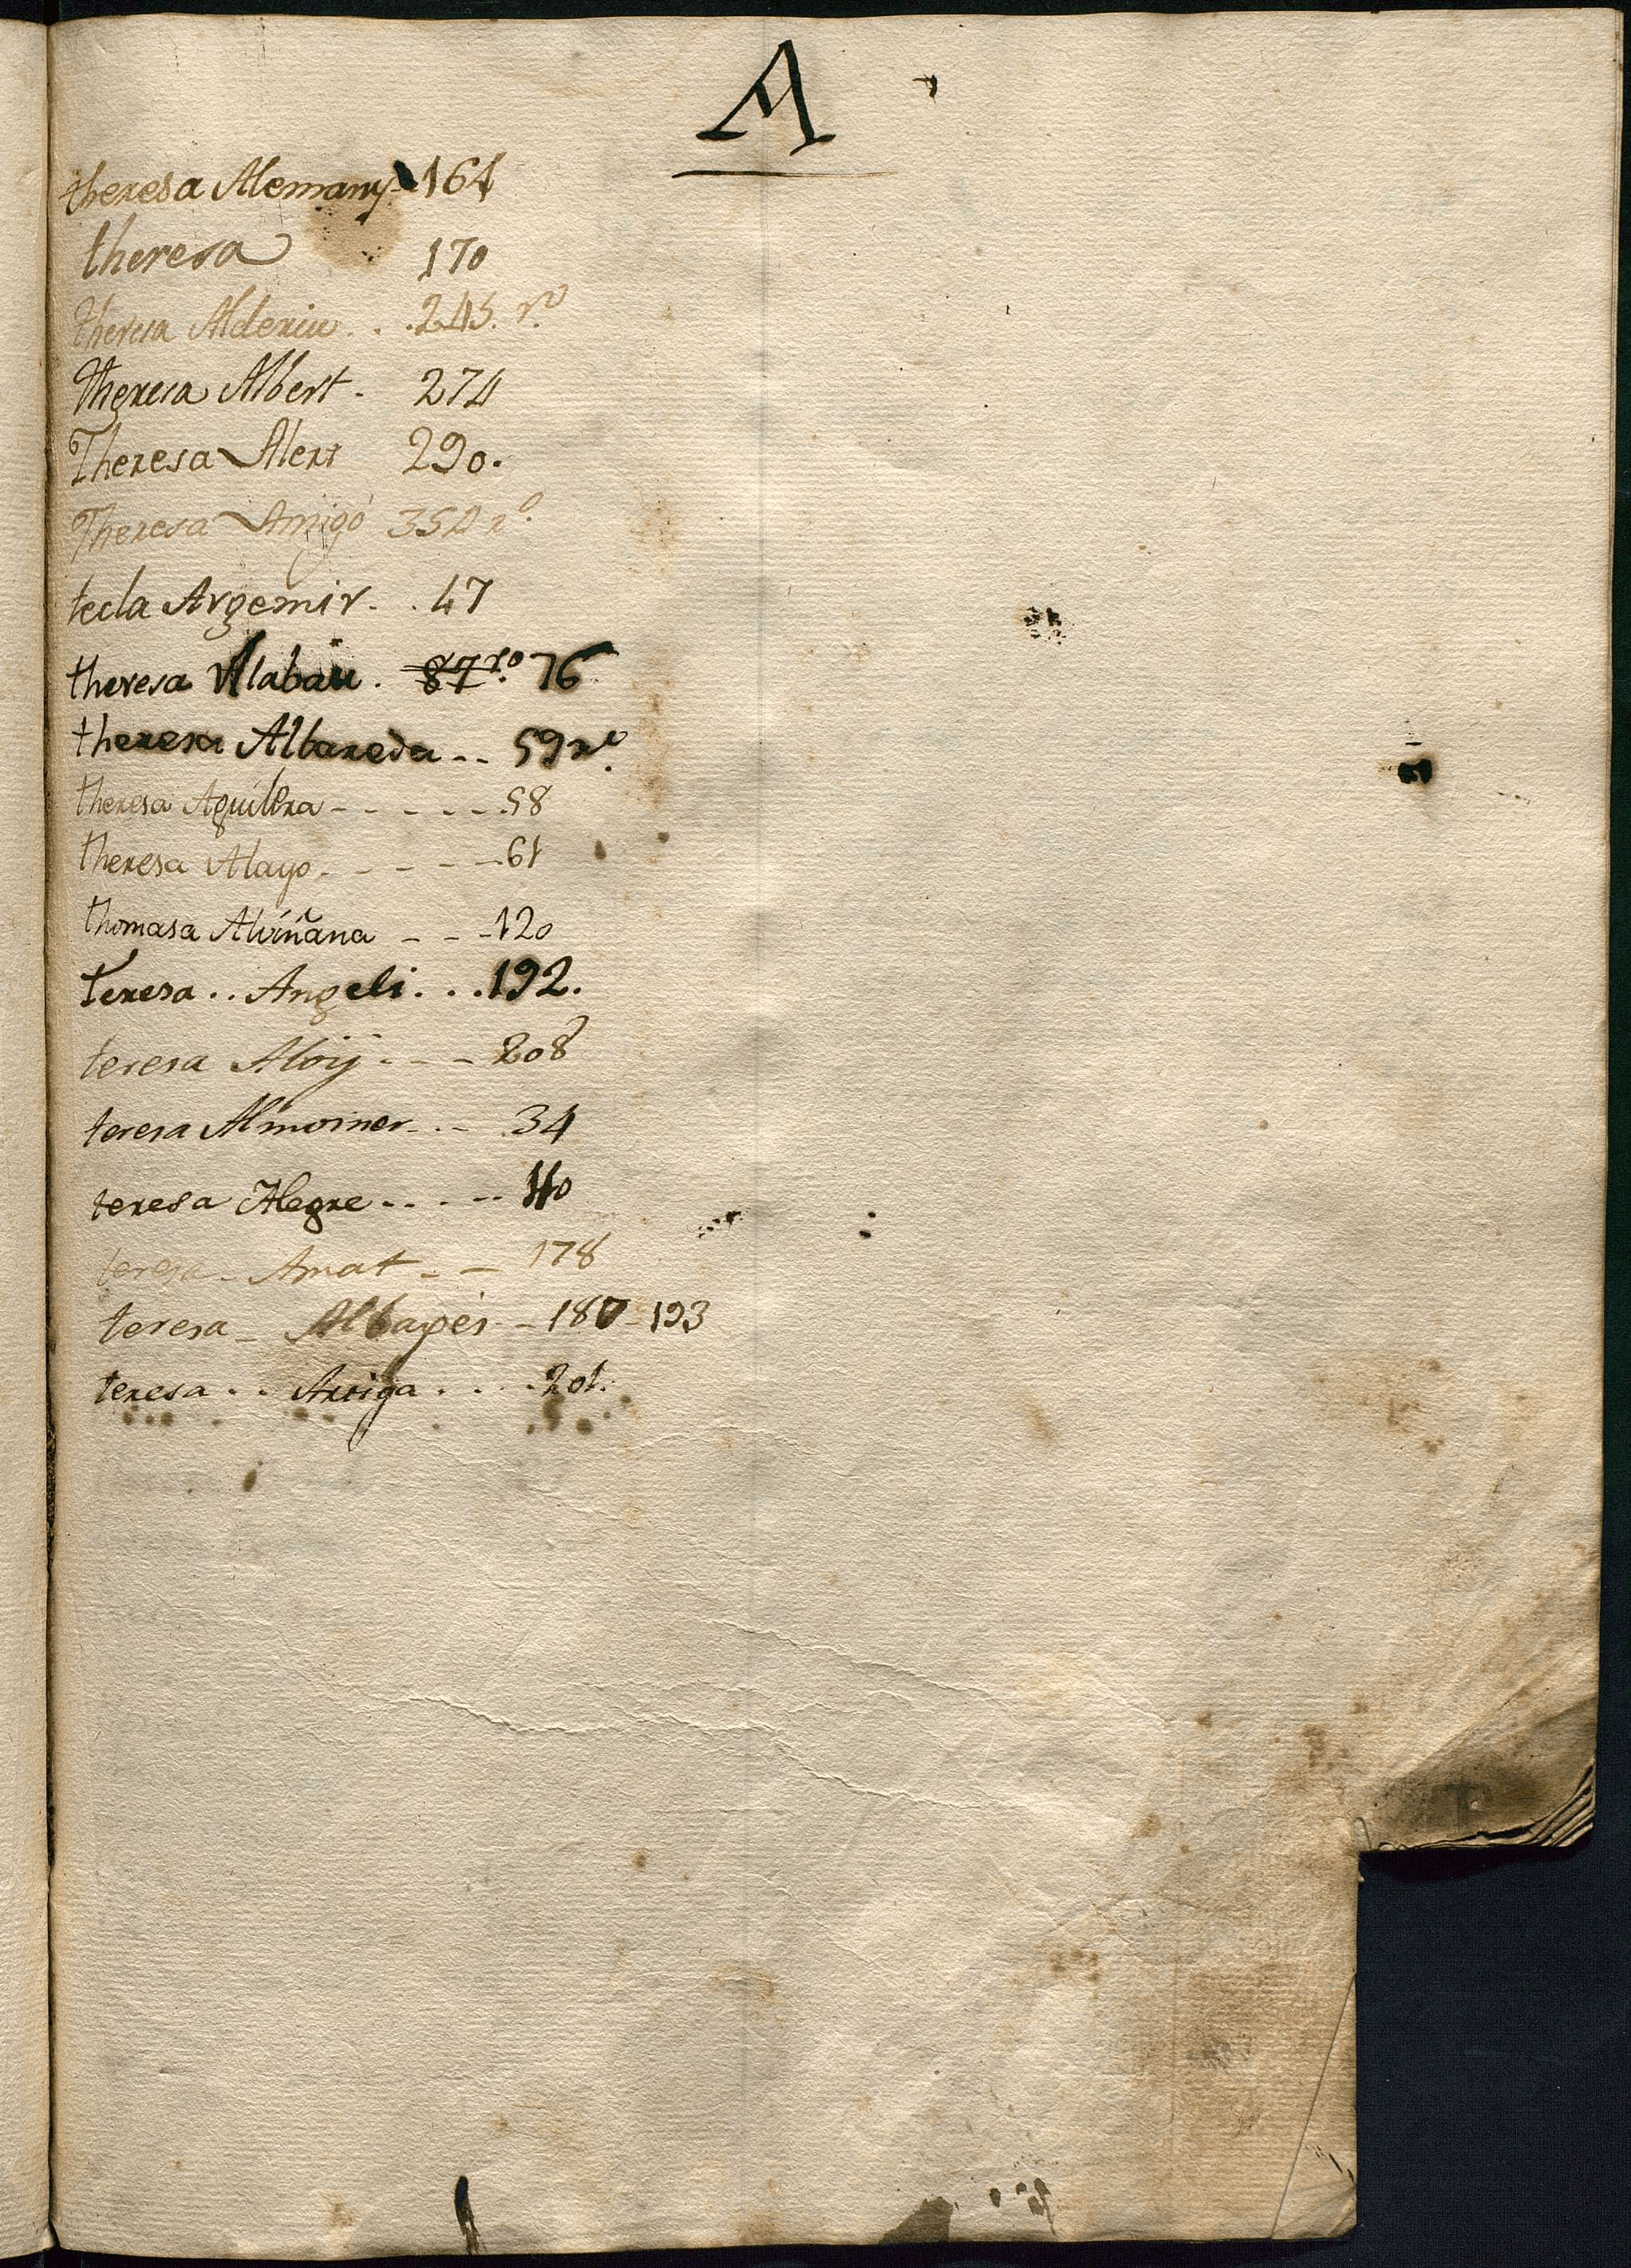 A
theresa Alemany - 164
theresa 170
theresa Alderiu . . . 245. rº
theresa Albert - 274
Theresa Alert 290.
Theresa Amigó 354 rº.
tecla Argemir. . 47
theresa Alabau . 87 rº. 76
theresa Albareda - - 59 rº.
theresa Aguilera - - - - - - 58
theresa Alayo. - - - - - 61
thomasa Alviñana - - - 120
Teresa . . Angeli . . . 192.
teresa Aloij - - - - 208
teresa Almoiner - . - 34
teresa Alegre - - . - - - 40
teresa - Amat - - 178
teresa - Albapés - - 187 - 193
teresa . . Artiga . . . . 201.
T